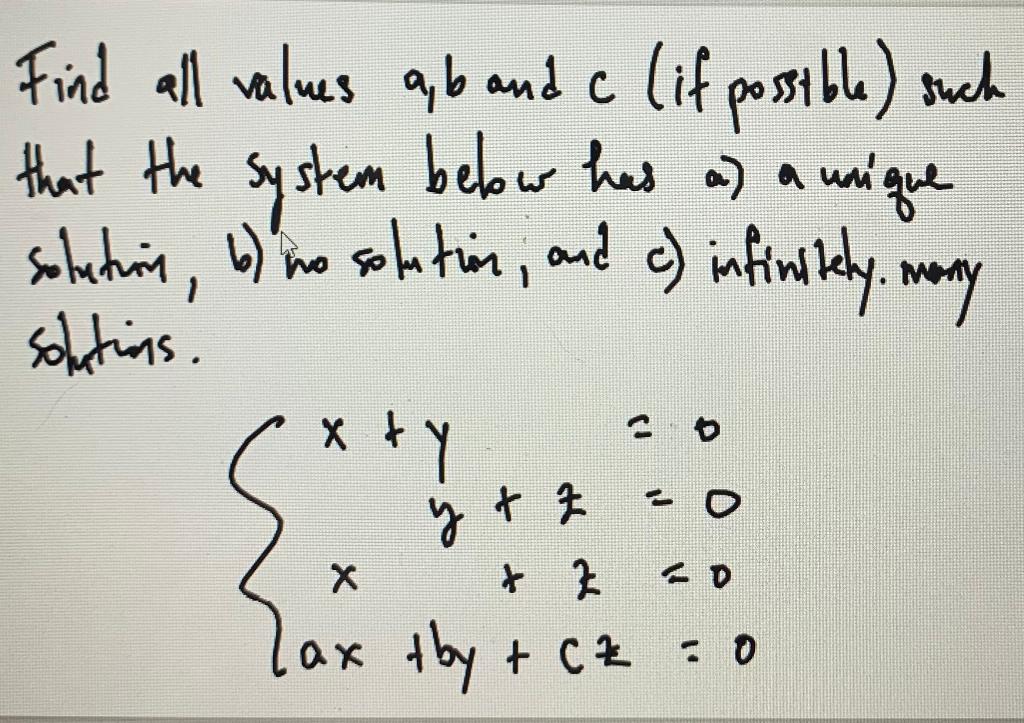 Find all values a, b and c (if possible) such
that the system below has a) a unique
solution, b) no solution, and c) infinitely many
solutions.
x + y = 0
y + z = 0
x + z = 0
ax + by + cz = 0